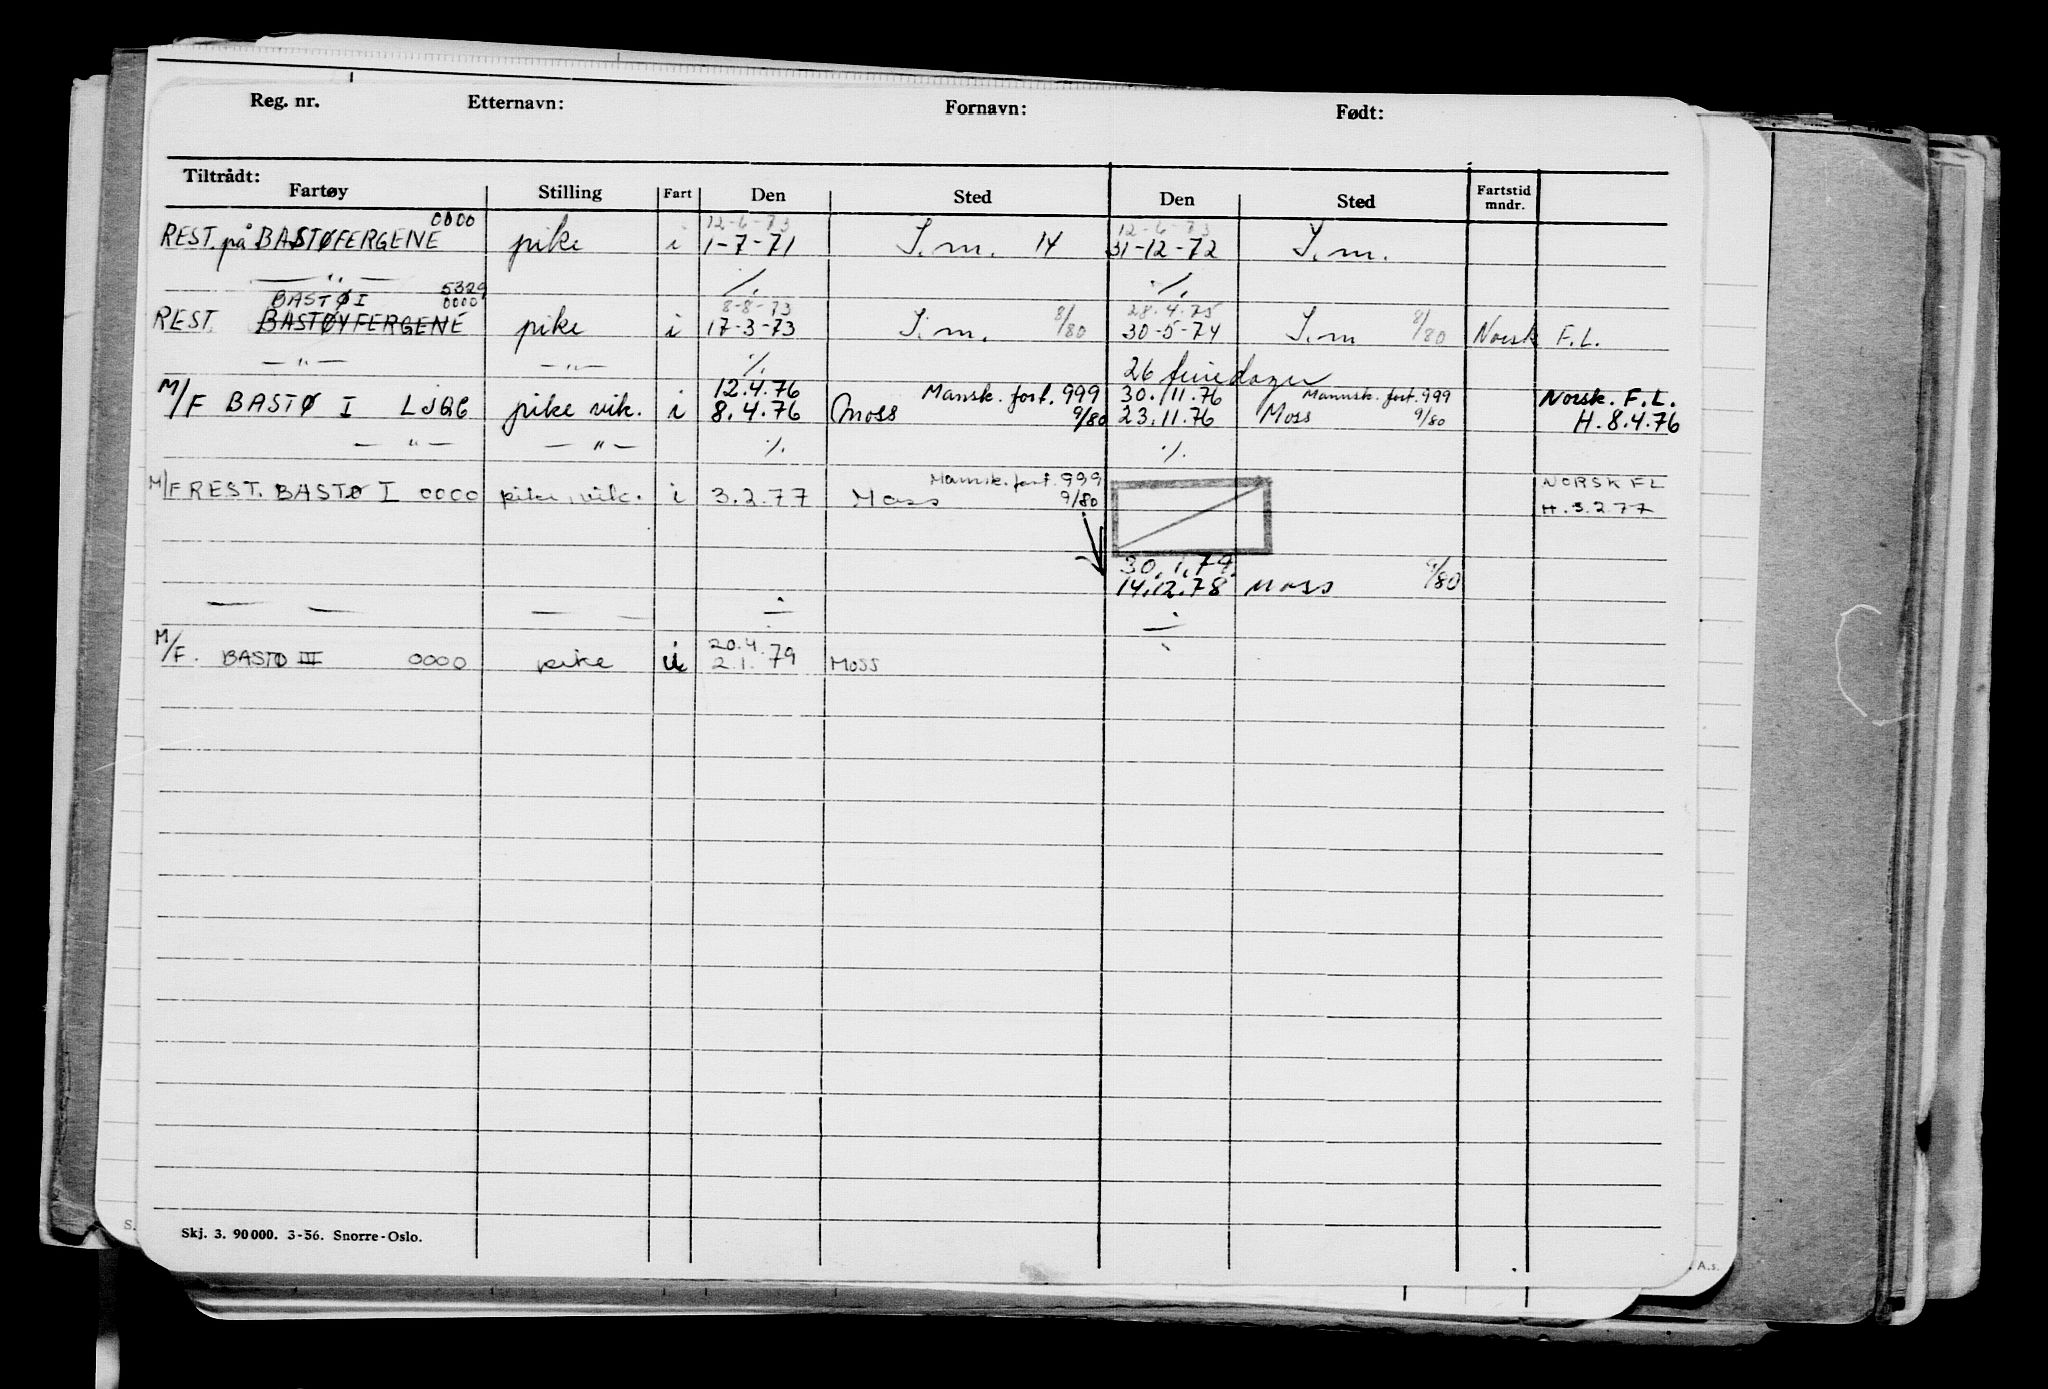 Reg. nr. Etternavn: Fornavn: Født:
Tiltrådt:
Fartøy Stilling Fart Den Sted Den Sted Fartstid mndr.
0000 12-6-73 12-6-73
REST. på BASTØFERGENE pike i 1-7-71 S.m. 14 31-12-72 S.m.
— " — ·/. ·/.
BASTØ I 5329
0000 8-8-73 8/80 28.4.75 8/80
REST. BASTØYFERGENE pike i 17-3-73 S.m. 30-5-74 S.m Norsk F.L.
— " — — " — ·/. 26 feriedager
12.4.76 Mansk. fort. 999 30.11.76 Mannsk. fort. 999 Norsk. F.L.
M/F BASTØ I LJQG pike vik. i 8.4.76 Moss 9/80 23.11.76 Moss 9/80 H. 8.4.76
— " — — " — ·/. ·/.
Mannsk. fort. 999 NORSK FL
M/F REST. BASTØ I 0000 pike, vik. i 3.2.77 Moss 9/80 H. 3.2.77
30.1.79.
14.12.78 Moss 9/80
20.4.
M/F. BASTØ III 0000 pike i 2.1.79 Moss
Skj. 3. 90 000. 3-56. Snorre-Oslo.
S.
A.s.